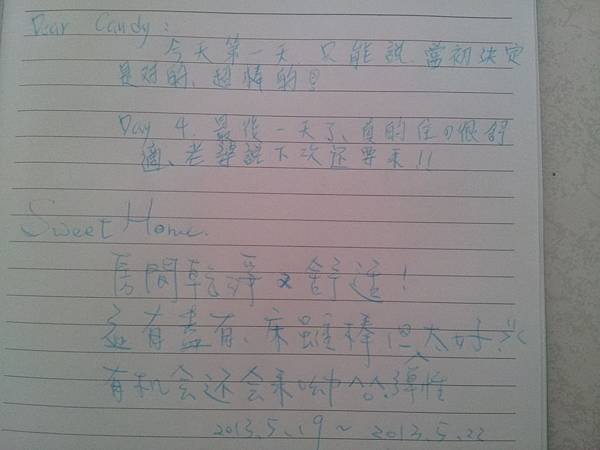 Dear Candy:
今天第一天,只能說,當初決定
是对的,超棒的!
Day 4. 最後一天了,真的住的很舒
適,老婆說下次还要來!!
Sweet Home.
房間乾淨又舒適!
有盡有,床雖棒但太好
有机会还会来呦 彈性
2013.5.19 ~ 2013.5.22